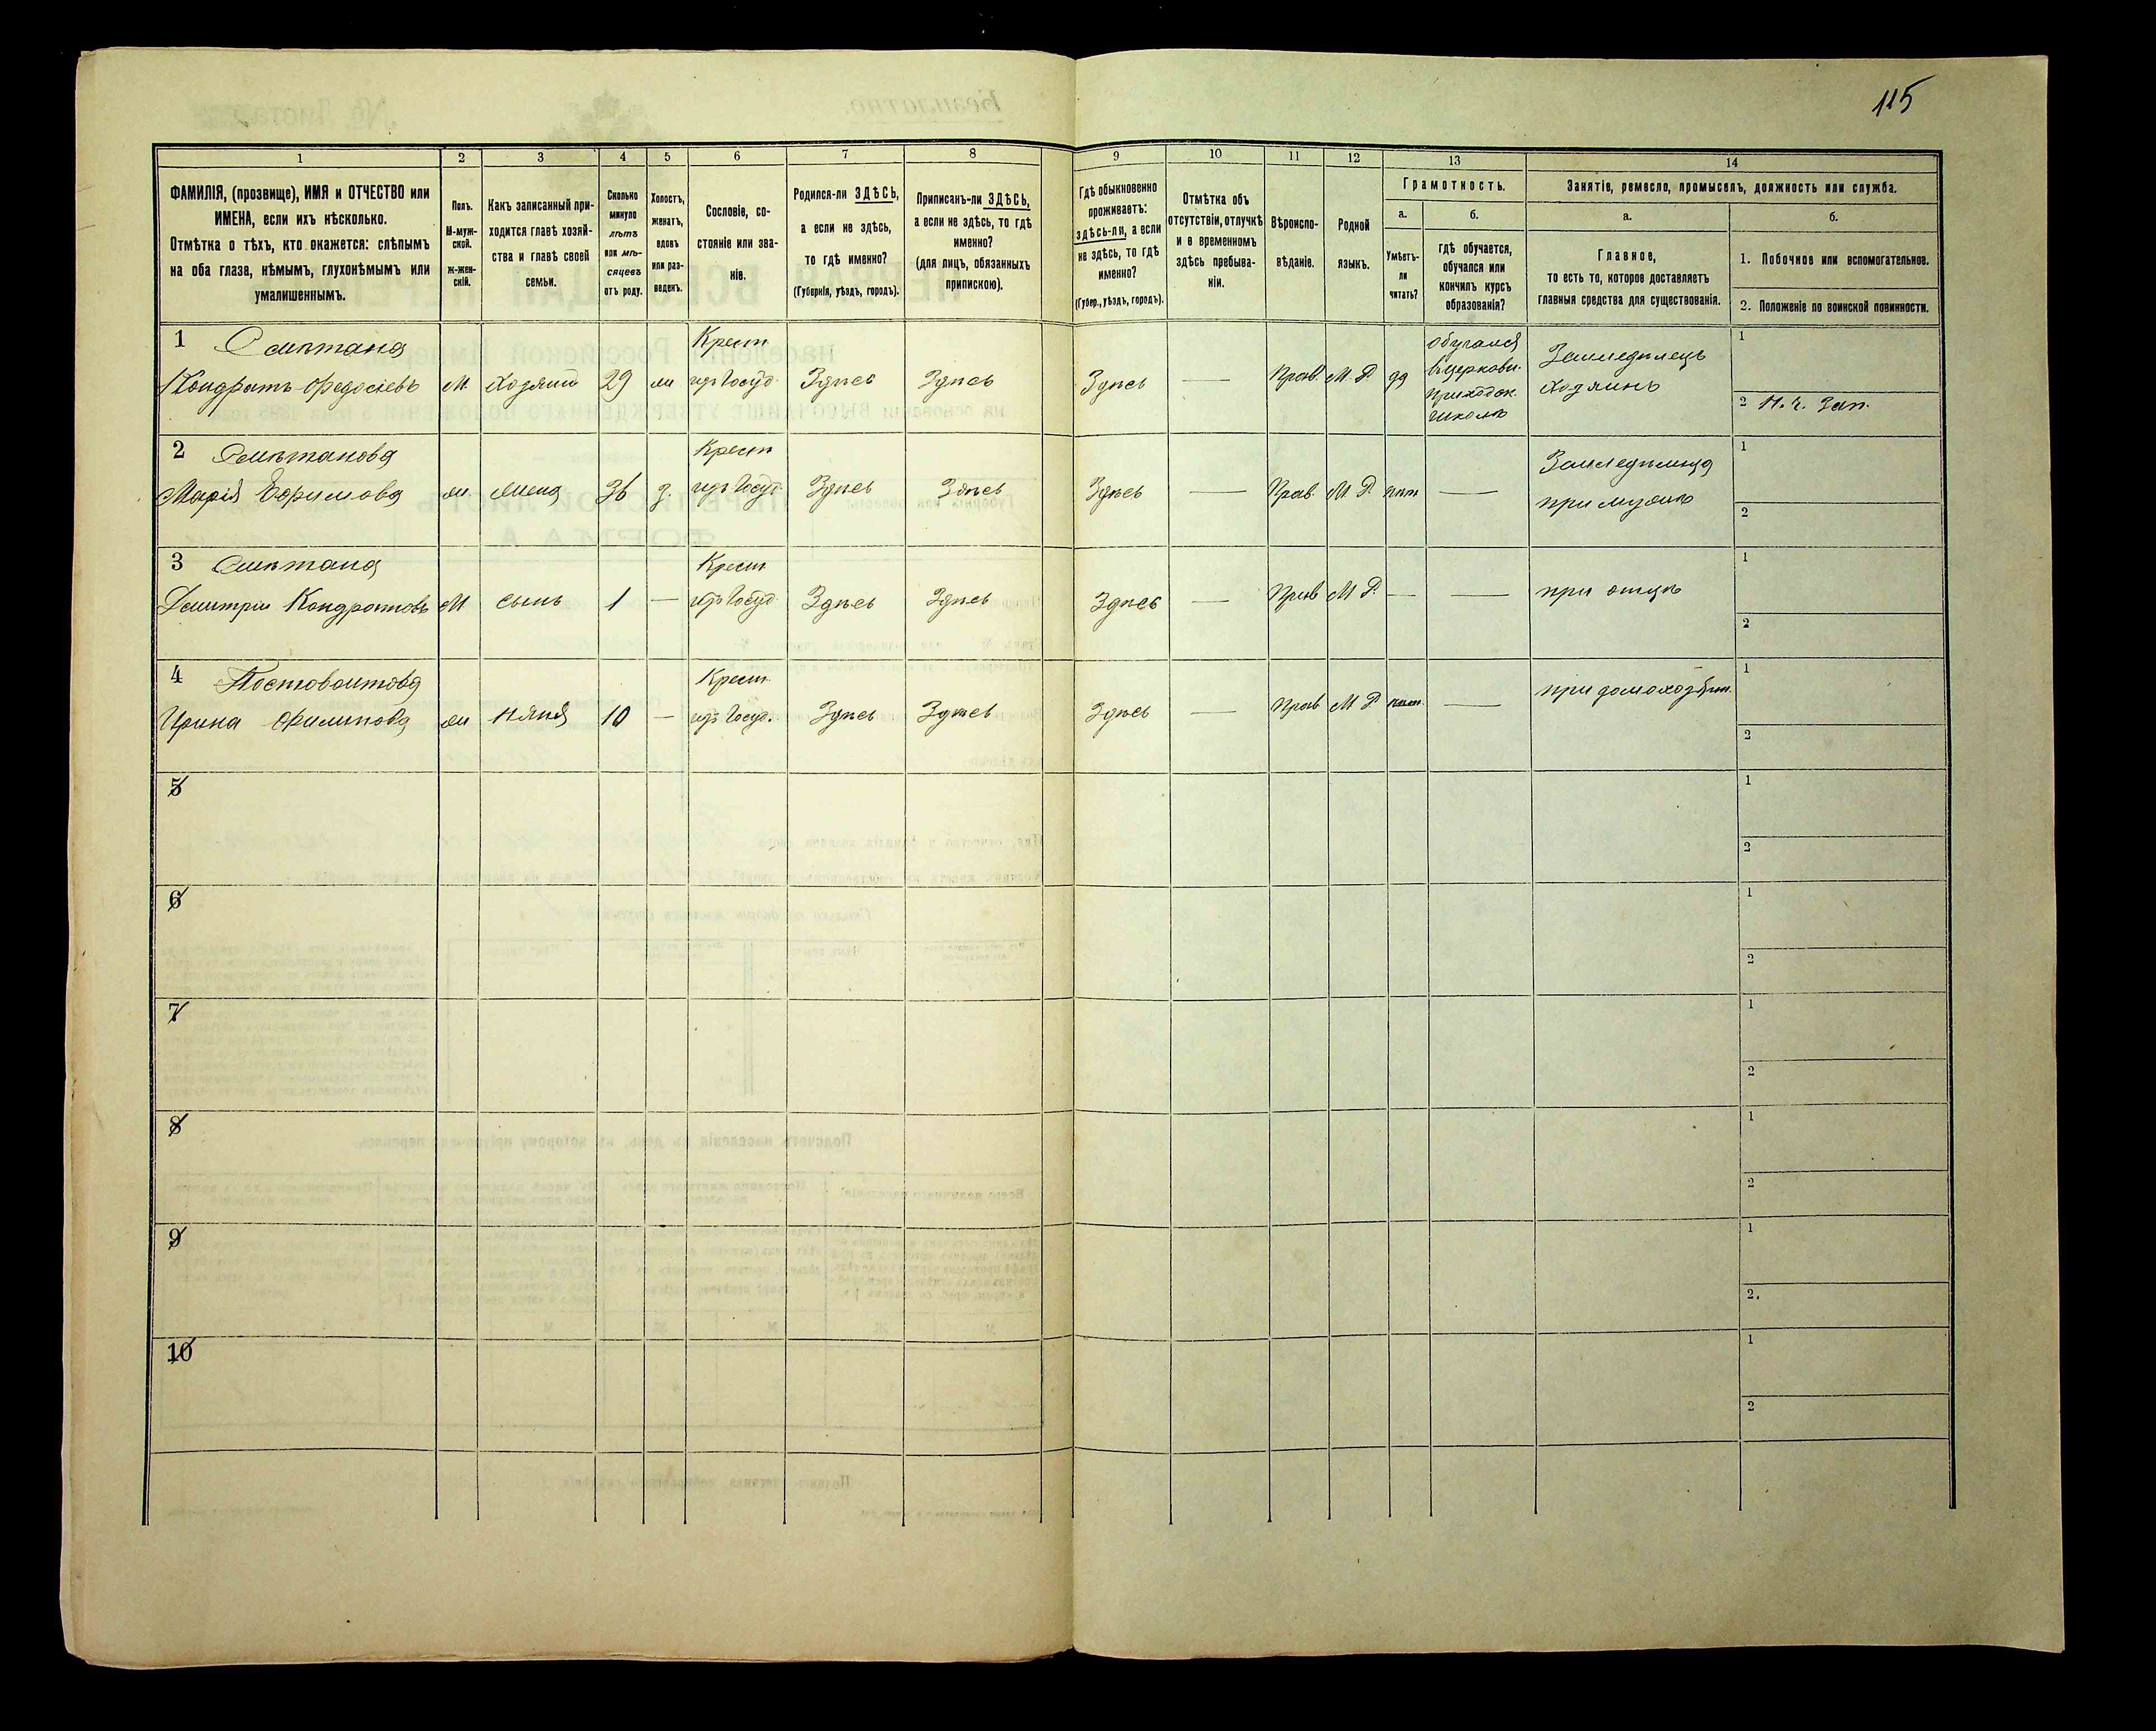 115
1
2
3
4
5
6
7
8
9
10
11
12
13
14
ФАМИЛІЯ, (прозвище), ИМЯ и ОТЧЕСТВО или
ИМЕНА, если ихъ нѣсколько.
Отмѣтка о тѣхъ, кто окажется: слѣпымъ
на оба глаза, нѣмымъ, глухонѣмымъ или
умалишеннымъ.
Полъ.
М-муж-
ской.
Ж-жен-
скій.
Какъ записанный при-
ходится главѣ хозяй-
ства и главѣ своей
семьи.
Сколько
минуло
лѣтъ
или мѣ-
сяцевъ
отъ роду.
Холостъ,
женатъ,
вдовъ
или раз-
веденъ.
Сословіе, со-
стояніе или зва-
ніе.
Родился-ли ЗДѢСЬ,
а если не здѣсь,
то гдѣ именно?
(Губернія, уѣздъ, городъ).
Приписанъ-ли ЗДѢСЬ,
а если не здѣсь, то гдѣ
именно?
(для лицъ, обязанныхъ
припискою).
Гдѣ обыкновенно
проживаетъ:
здѣсь-ли, а если
не здѣсь, то гдѣ
именно?
(Губер., уѣздъ, городъ).
Отмѣтка объ
отсутствіи, отлучкѣ
и о временномъ
здѣсь пребыва-
ніи.
Вѣроиспо-
вѣданіе.
Родной
языкъ.
Грамотность.
а.
Умѣетъ-
ли
читать?
б.
гдѣ обучается,
обучался или
кончилъ курсъ
образованія?
Занятіе, ремесло, промыселъ, должность или служба.
а.
Главное,
то есть то, которое доставляетъ
главныя средства для существованія.
б.
1. Побочное или вспомогательное.
2. Положеніе по воинской повинности.
1 Смѣтана
Кондратъ Федосіевъ М. Хозяинъ 29 ж Крест
изъ Госуд. Здѣсь Здѣсь Здѣсь — Прав. М. Р. да
обучался
въ церковн.
приходск.
школѣ
Земледѣлецъ
Хозяинъ
1
2 Н. ч. Зап.
2 Смѣтанова
Марія Ефимова ж. Жена 36 з. Крест
изъ Госуд. Здѣсь Здѣсь Здѣсь — Прав. М. Р. нѣт —
Земледѣлица
при мужѣ
1
2
3 Смѣтана
Дмитрій Кондратовъ М сынъ 1 — Крест
изъ Госуд. Здѣсь Здѣсь Здѣсь — Прав М. Р. — —
при отцѣ
1
2
4 Постовойтова
Ирина Филипова ж няня 10 — Крест
изъ Госуд. Здѣсь Здѣсь Здѣсь — Прав М. Р нѣт. —
при домохозяин.
1
2
5
1
2
6
1
2
7
1
2
8
1
2
9
1
2.
10
1
2